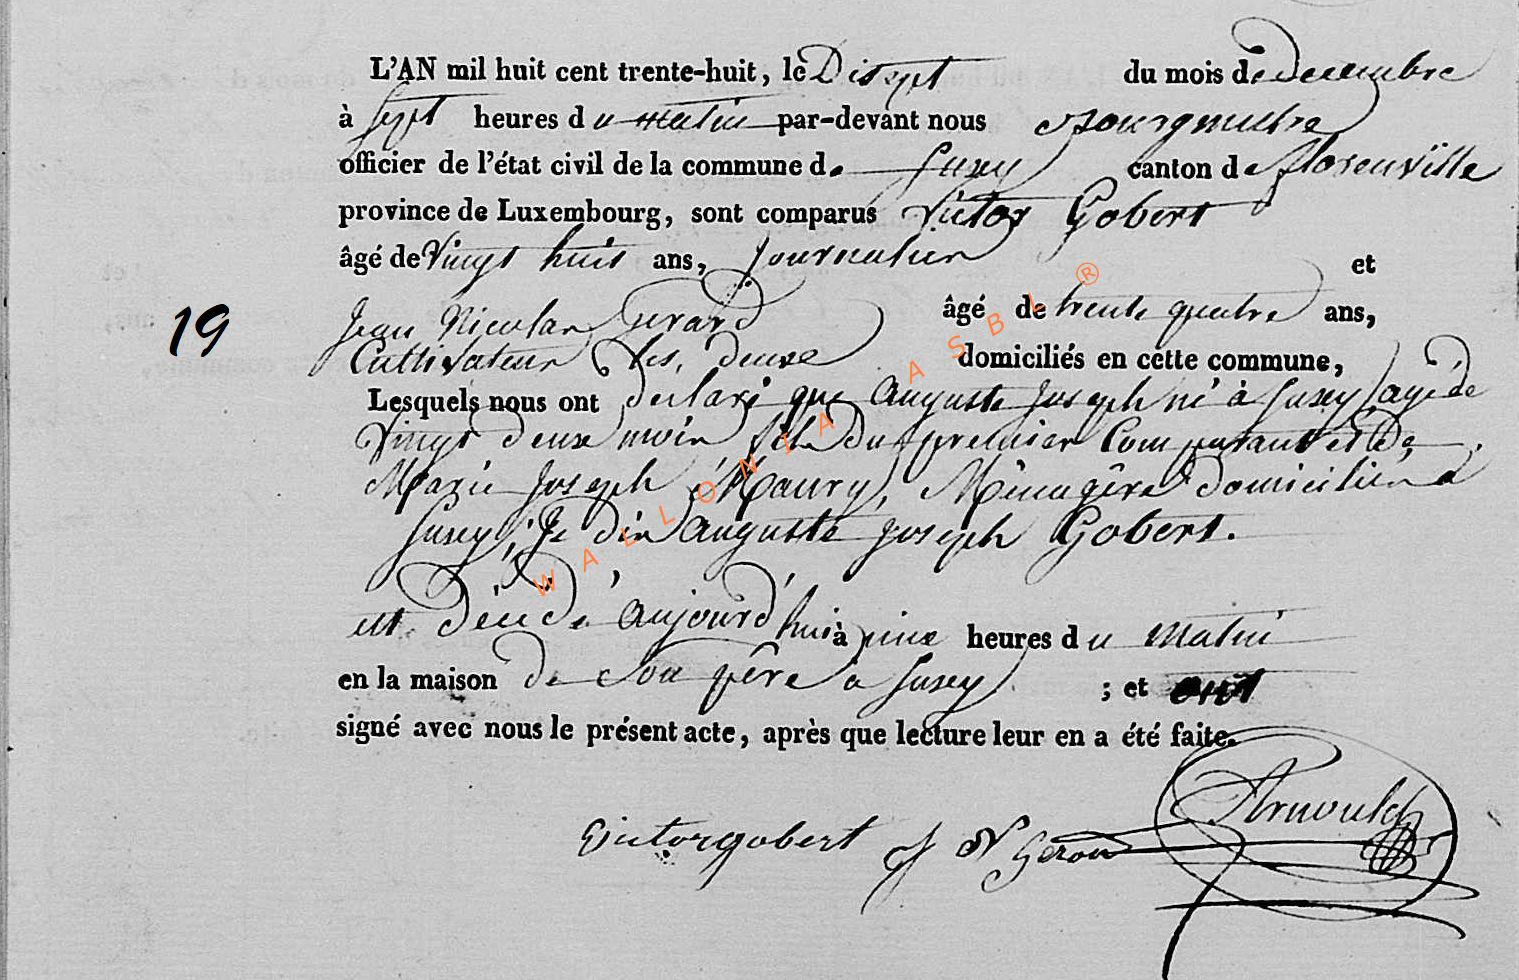 L'AN mil huit cent trente-huit, le Dixsept du mois de decembre
à sept heures du matin par-devant nous Bourgmestre
officier de l'état civil de la commune de Suxey canton de florenville
province de Luxembourg, sont comparus Victor Gobert
âgé de Vingt huit ans, journalier et
19
Jean Nicolas Gerard âgé de trente quatre ans,
Cultivateur les deux domiciliés en cette commune,
Lesquels nous ont declaré que Auguste Joseph né à Suxey, agé de
Vingt deux mois fils du premier Comparant et de
Marie Joseph Maury, Ménagère domiciliés à
Suxey; Le dit Auguste Joseph Gobert.
est décédé aujourd'hui à six heures du matin
en la maison de son père à Suxey ; et ont
signé avec nous le présent acte, après que lecture leur en a été faite.
Victor gobert J N Gerard Arnould
WALLONIA ASBL ®